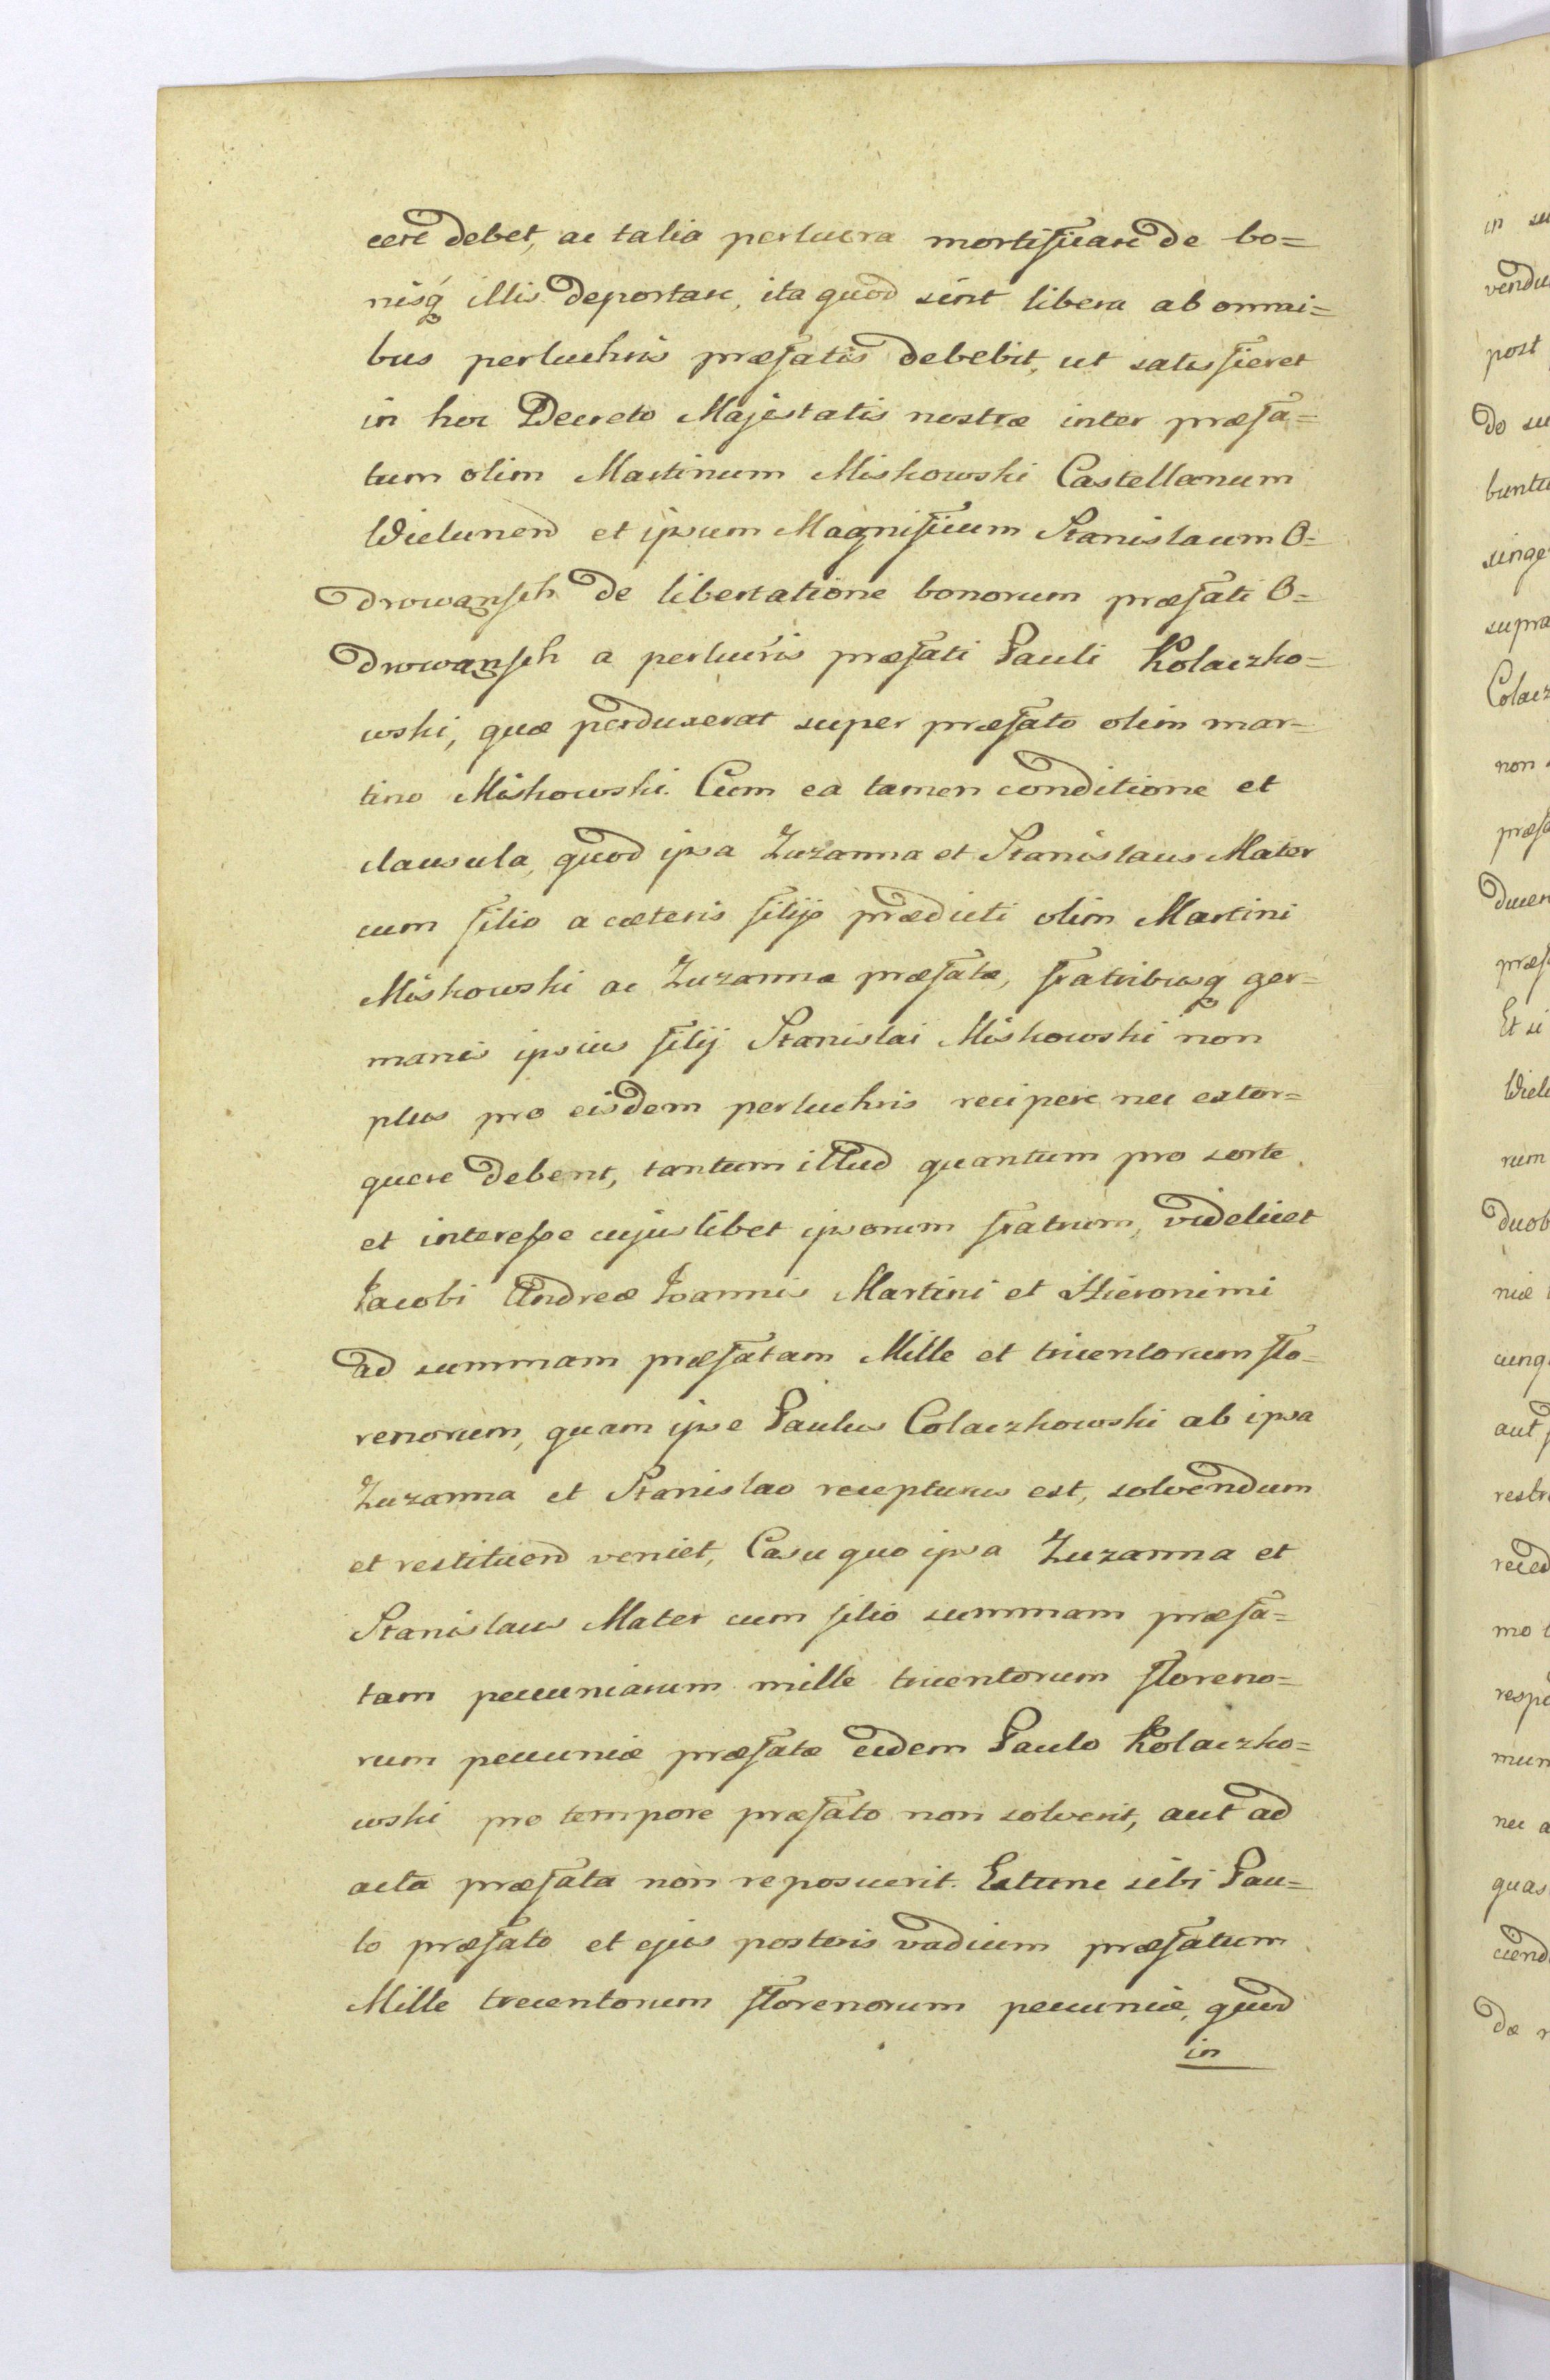 cere debet, ac talia perlucra mortificare de bo=
nisq́ illis deportare, ita quod sint libera ab omni=
bus perluchris præfatis debebit, ut satisfieret
in hoc Decreto Majestatis nostræ inter præfa=
tum olim Martinum Miskowski Castellanum
Wielunend et ipsum Magnificum Stanislaum O=
drowansch de libertatione bonorum præfati O=
drowansch a perlucris præfati Pauli Kolaczko=
wski, quæ perduxerat super præfato olim mar=
tino Miskowski. Cum ea tamen conditione et
clausula, quod ipsa Zuzanna et Stanislaus Mater
cum filio a cæteris filijs prædicti olim Martini
Miskowski ac Zuzannæ præfatæ, fratribusq ger=
manis ipsius filij Stanislai Miskowski non
plus pro eisdem perluchris recipere nec extor=
quere debent, tantum illud quantum pro sorte
et interesse cujuslibet ipsorum fratrum, videlicet
Jacobi Andreæ Joannis Martini et Hieronimi
ad summam præfatam Mille et tricentorum flo=
renorum, quam ipse Paulus Colaczkowski ab ipsa
Zuzanna et Stanislao recepturus est, solvendum
et restituend veniet, Casu quo ipsa Zuzanna et
Stanislaus Mater cum filio summam præfa=
tam pecuniarum mille tricentorum floreno=
rum pecuniæ præfatæ eidem Paulo Kolaczko=
wski pro tempore præfato non solverit, aut ad
acta præfata non reposuerit. Extunc sibi Pau=
lo præfato et ejus posteris vadium præfatum
Mille trecentorum florenorum pecuniæ, quod
in
in su
vendu
post
do su
buntu
singe
supra
Colacz
non
præfa
ducen
præf
Et si
Wiel
rum
duob
niæ
cunq
aut
restr
reced
mo
resp
mun
nec a
quas
ciend
dæ